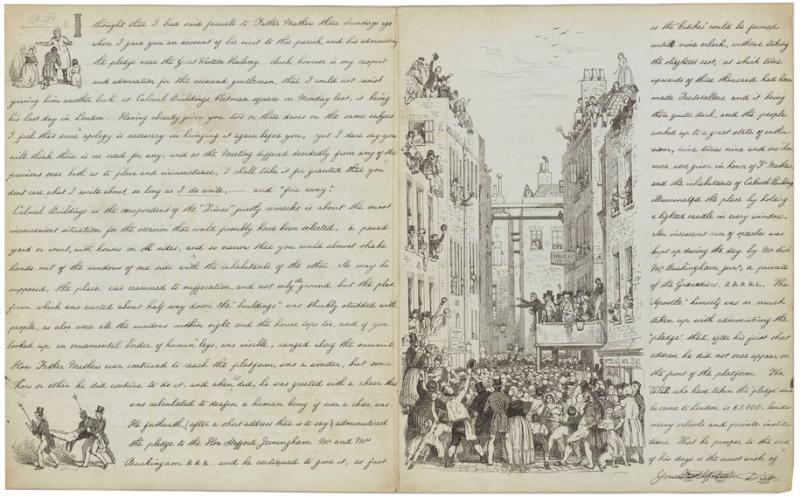 I thought that I had said farewell to Father Mathew three Sundays ago
when I gave you an account of his visit to this parish, and his administering
the pledge near the Great Western Railway. Such however is my respect
and admiration for the reverend gentleman, that I could not resist
giving him another look at Calmel Buildings Portman square on Monday last, it being
his last day in London. Having already given you two or three doses on the same subject
I feel that some apology is necessary in bringing it again before you, yet I dare say you
will think there is no need for any, and as the Meeting differed decidedly from any of the
previous ones both as to place and circumstance, I shall take it for granted that you
dont care what I write about, so long as I do write, — and "fire away."
Calmel Buildings as the correspondent of the "Times" justly remarks is about the most
inconvenient situation for the occasion that could possibly have been selected, a paved
yard or court, with houses on all sides, and so narrow that you could almost shake
hands out of the windows of one side with the inhabitants of the other. As may be
supposed, the place was crammed to suffocation, and not only the ground but the plat
form which was erected about half way down the "buildings" was thickly studded with
people, as also were all the windows within sight and the house tops too, and if you
looked up an ornamental border of human legs, was visible, ranged along the summit.
How Father Mathew ever contrived to reach the platform, was a wonder, but some
how or other he did contrive to do it, and when he did, he was greeted with a cheer that
was calculated to deafen a human being if ever a cheer was
He forthwith (after a short address that is to say) administered
the pledge to the Hon. Stafford Jerningham Mr and Mrs
Buckingam &c &c &c. and he continued to give it, as fast
as the "batches" could be formed
until nine oclock, without taking
the slightest rest, at which time
upwards of three thousand had been
made Teatotallers, and it being
then quite dark, and the people
worked up to a great state of enthu-
siasm, nine times nine and one cheer
more were given in honor of Fr Mathew
and the inhabitants of Calmel Building
illuminated the place by holding
a lighted candle in every window.
An incessant run of speeches was
kept up during the day by
Mr Buckingham junr, a private
of the Granadiers, &c &c &c. The
"Apostle" himself was so much
taken up with administering the
"pledge" that, after his first short
address he did not once appear on
the front of the platform. The
total who have taken the "pledge" since
he came to London is 69,000, besides
many schools and private institu
tions. That he prosper to the end
of his days is the ernest wish of
Your